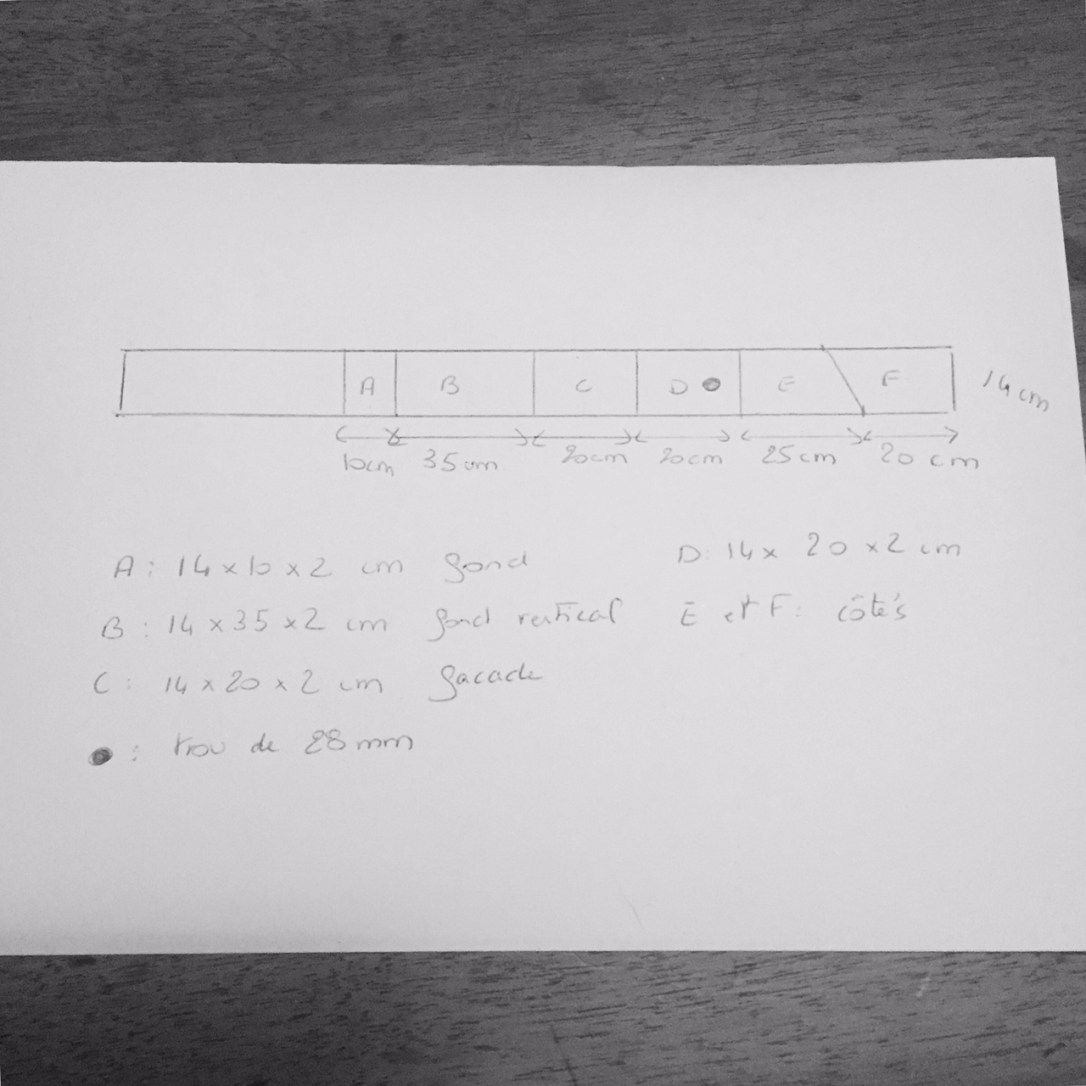 A B C D E F 14 cm
10cm 35 cm 20cm 20cm 25 cm 20 cm
A : 14 x 10 x 2 cm fond
B : 14 x 35 x 2 cm fond vertical
C : 14 x 20 x 2 cm facade
● : trou de 28 mm
D : 14 x 20 x 2 cm
E et F : côtés